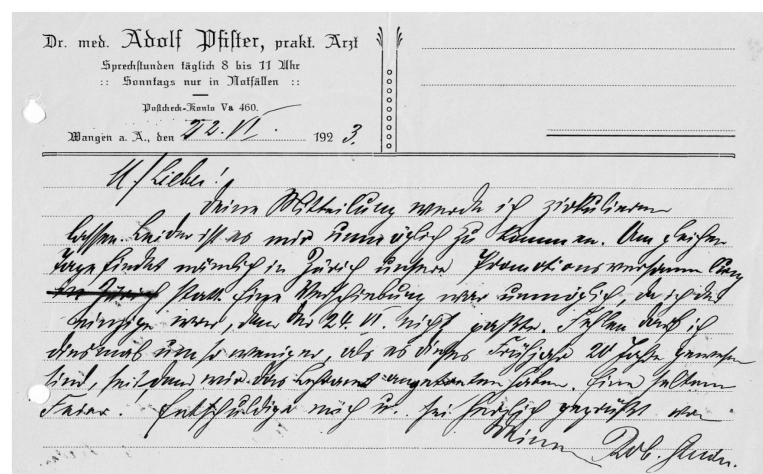 Dr. med. Adolf Pfister, prakt. Arzt
Sprechstunden täglich 8 bis 11 Uhr
:: Sonntags nur in Notfällen ::
Postcheck-Konto Va 460.
Wangen a. A., den 22. VI. 1923.
M/ Lieber!
Deine Mitteilung werde ich zirkulieren
lassen. Leider ist es mir unmöglich zu kommen. Am gleichen
Tage findet nämlich in Zürich unsere Promotionsversammlung
statt. Eine Verschiebung war unmöglich, da ich der
einzige war, dem der 24. VI. nicht passte. Fehlen darf ich
diesmal um so weniger, als es dieses Frühjahr 20 Jahre gewesen
sind, seitdem wir das Lehramt angetreten haben. Eine seltene
Feier. Entschuldige mich u. sei herzlich gegrüßt von
Deinem Rob.